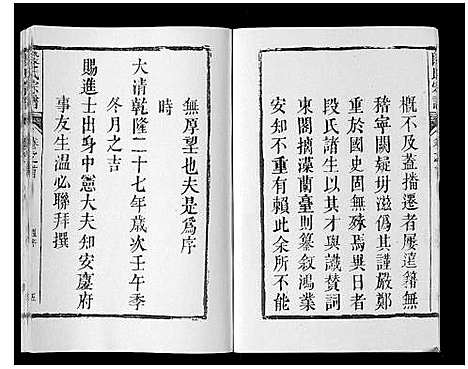 概不及蓋播遷者屢遠籍無
稽寧闕疑毋滋偽其謹嚴鄭
重直於國史固無殊焉矣異日
段氏諸生以其才與識賛詞
東閣摛藻蘭臺則纂敘鴻業
安知不重有賴此余所不能
無厚望也夫是為序
時
大清乾隆二十七年歲次壬午季
冬月之吉
賜進士出身中憲大夫知安慶府
事友生温必聯拜撰
段氏宗譜
卷之首